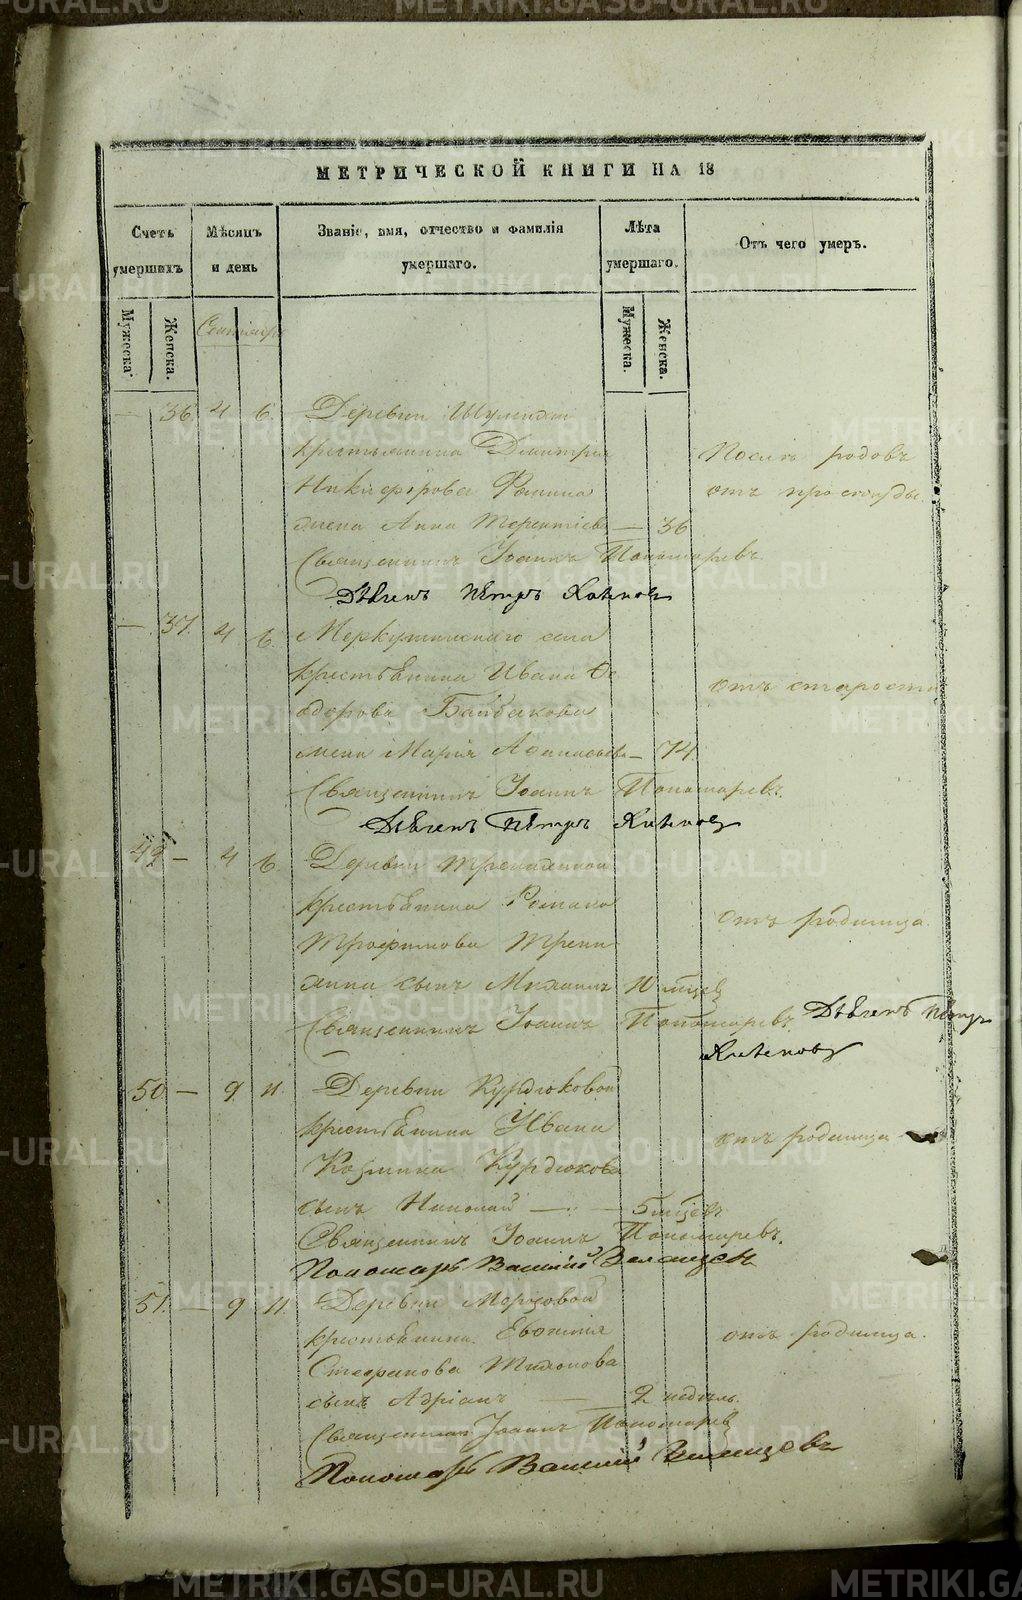 МЕТРИЧЕСКОЙ КНИГИ НА 18
Счетъ умершихъ
Мѣсяцъ и день
Званіе, имя, отчество и фамилія умершаго.
Лѣта умершаго.
Отъ чего умеръ.
Мужеска.
Женска.
Сентября
Мужеска.
Женска.
— 36 4 6 Деревни
крестьянина Димитрія Послѣ родовъ
Никифорова отъ простуды.
жена Анна Терентіева — 36
Священникъ Іоаннъ Пономаревъ
Петръ
— 37. 4 6. Меркушинскаго села
крестьянина Ивана Ѳе отъ старости
одорова Байбакова
жена Марія Афанасьева — 74.
Священникъ Іоаннъ Пономаревъ.
Петръ
49 — 4 6. Деревни
крестьянина Романа отъ родимца.
Трофимова
сынъ Михаилъ
Священникъ Іоаннъ Пономаревъ. Петръ
50. — 9. 11. Деревни Курдюковой
крестьянина Ивана отъ родимца
Козмина Курдюкова
сынъ Николай — 5 мцевъ
Священникъ Іоаннъ Пономаревъ.
Пономарь Василій
51. — 9 11. Деревни Морзовой
крестьянина Евѳимія отъ родимца.
Стефанова Тихонова
сынъ Адріанъ — 2 недѣль.
Священникъ Іоаннъ Пономаревъ
Пономарь Василій
METRIKI.GASO-URAL.RU